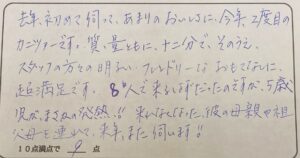 去年、初めて伺って、あまりのおいしさに、今年2度目の
カニツアーです。質、量ともに、十二分で、そのうえ、
スタッフの方々の明るい、フレンドリーなおもてなしに、
超満足です。8人で来るはずだったのですが、5歳
児が、まさかの発熱!! 来れなくなった、彼の母親や祖
父母を連れて、来年、また伺います!!
10点満点で 9 点